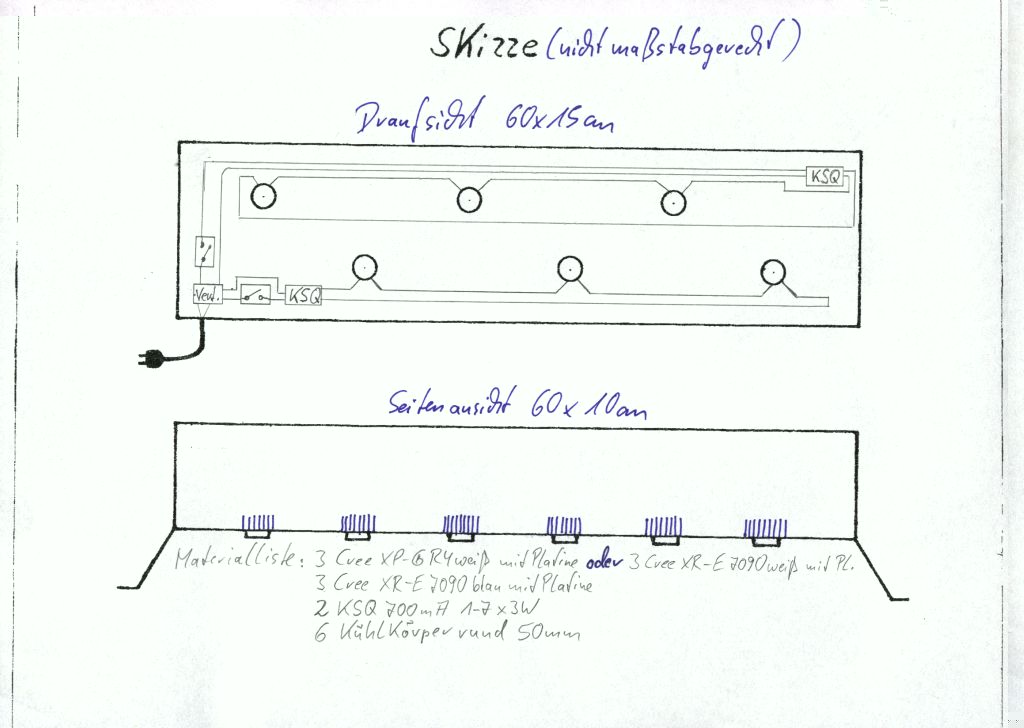 Skizze (nicht maßstabgerecht)
Draufsicht 60x15cm
KSQ
Vert.
KSQ
Seitenansicht 60x10cm
Materialliste: 3 Cree XP-G R4 weiß mit Platine oder 3 Cree XR-E 7090 weiß mit Pl.
3 Cree XR-E 7090 blau mit Platine
2 KSQ 700mA 1-7x3W
6 Kühlkörper rund 50mm